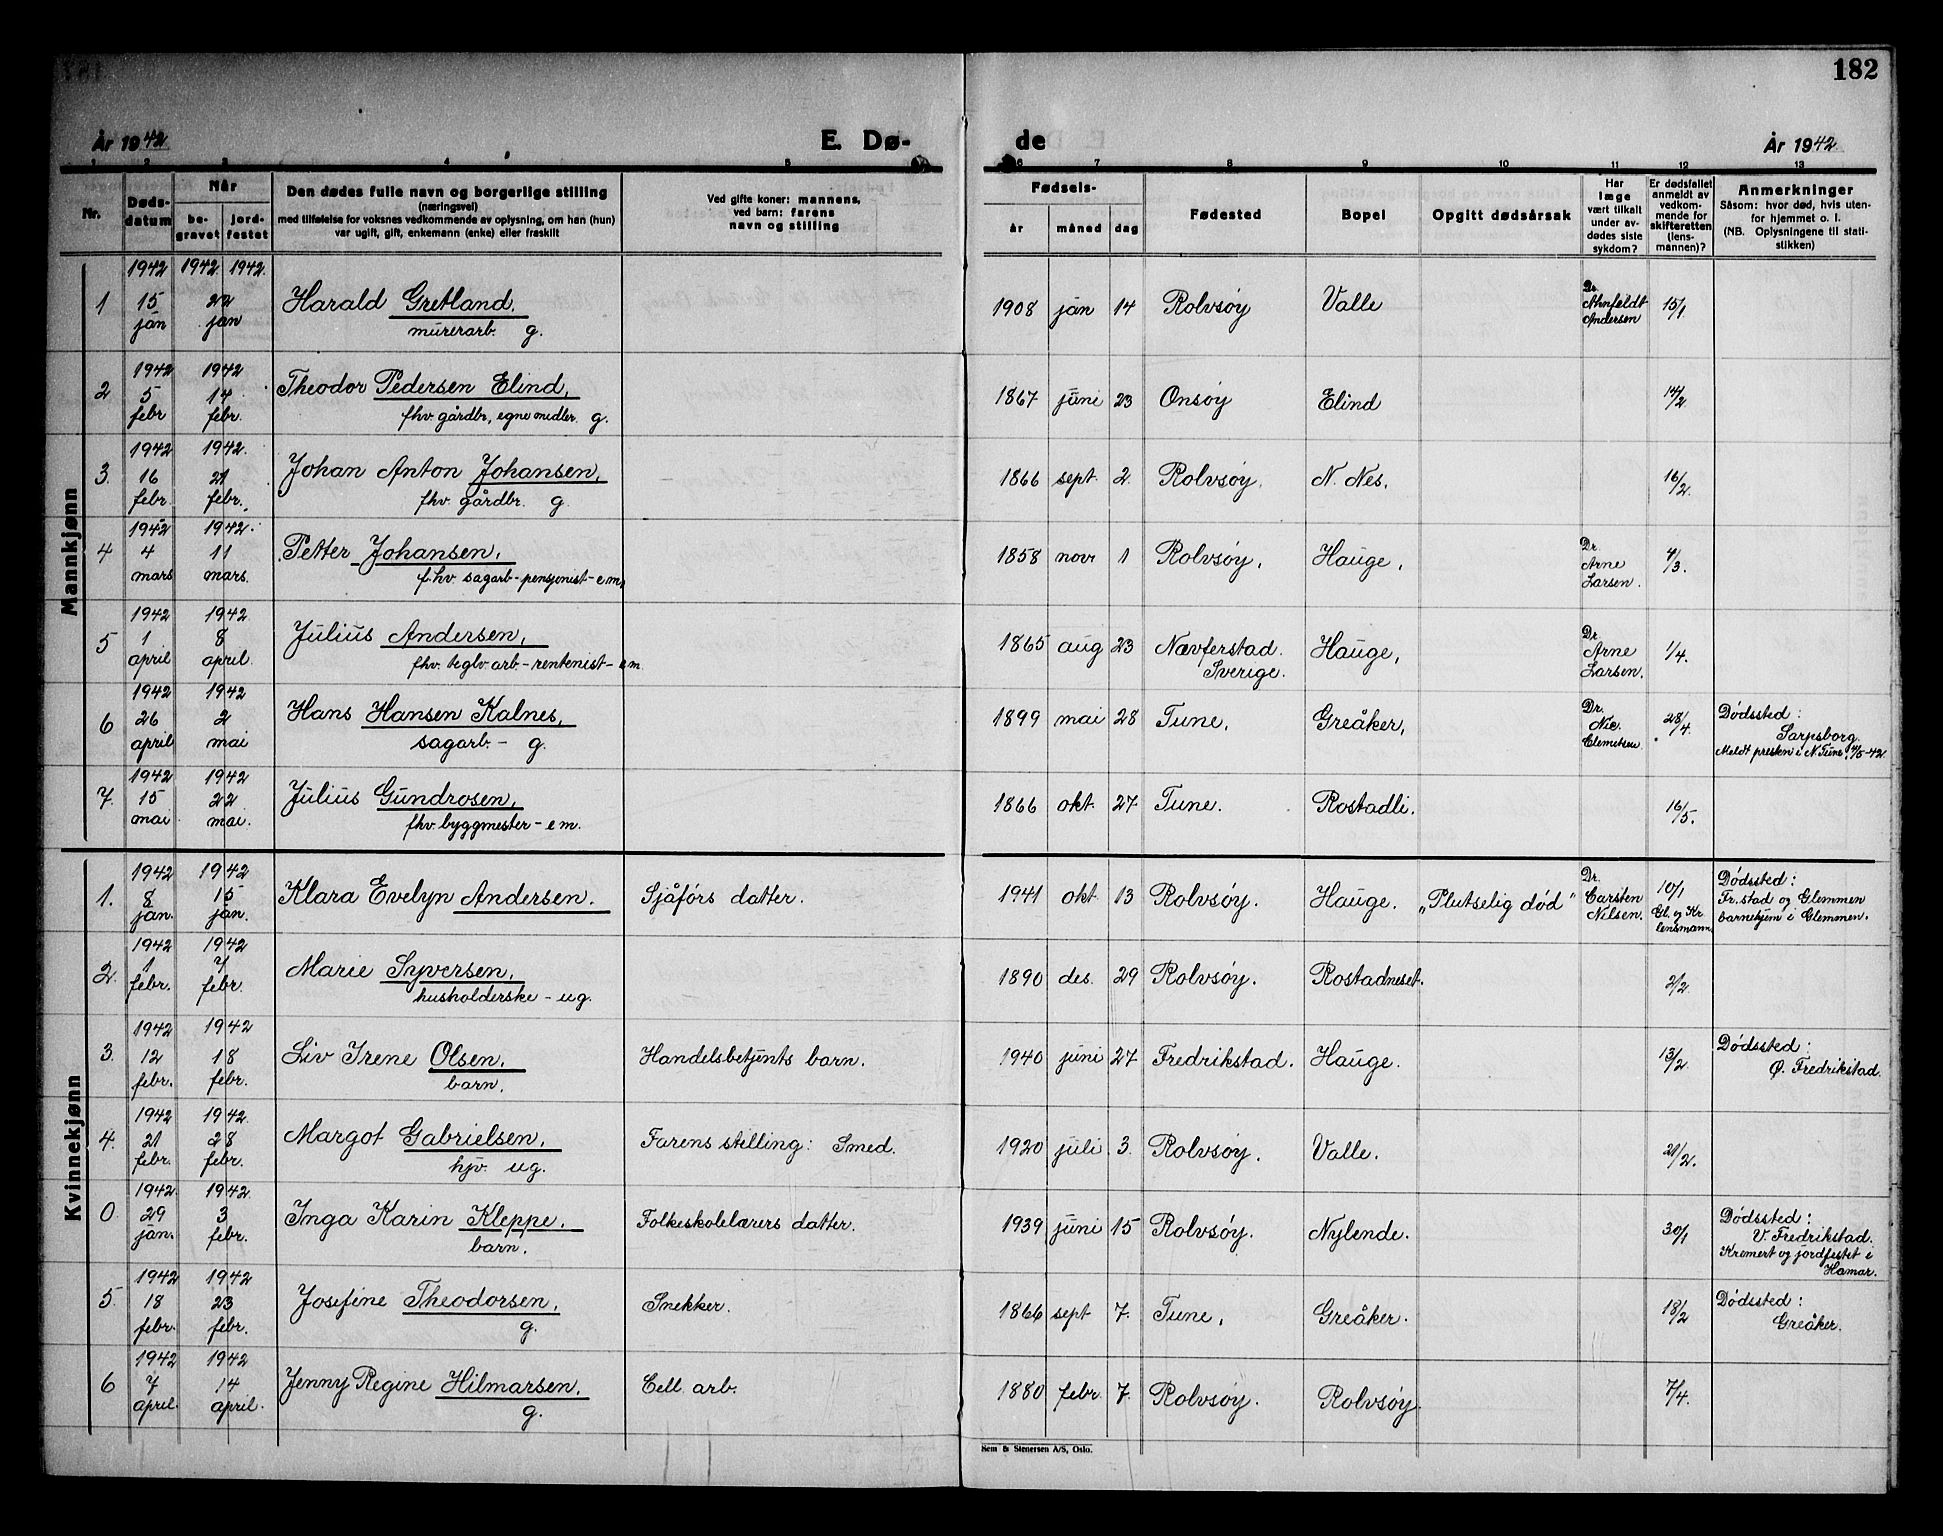 182
År 1942
E. Dø-
de
År 1942.
1 2 3 4 5 6 7 8 9 10 11 12 13
Nr.
Døds-
datum
Når
be-
gravet
jord-
festet
Den dødes fulle navn og borgerlige stilling
(næringsvei)
med tilføielse for voksnes vedkommende av oplysning, om han (hun)
var ugift, gift, enkemann (enke) eller fraskilt
Ved gifte koner: mannens,
ved barn: farens
navn og stilling
Fødsels-
år
måned
dag
Fødested
Bopel
Opgitt dødsårsak
Har
læge
vært tilkalt
under av-
dødes siste
sykdom?
Er dødsfallet
anmeldt av
vedkom-
mende for
skifteretten
(lens-
mannen)?
Anmerkninger
Såsom: hvor død, hvis uten-
for hjemmet o. l.
(NB. Oplysningene til stati-
stikken)
Mannkjønn
1942 1942 1942.
1 15 jan 22 jan Harald Gretland.
murerarb. g.
1908 jan 14 Rolvsøy Valle Dr. Ahnfeldt Andersen 15/1
1942 1942
2 5 febr 14 febr. Theodor Pedersen Elind,
fhv gårdbr, egne midler g.
1867 juni 23 Onsøy Elind 14/2
1942 1942.
3. 16 febr. 21 febr. Johan Anton Johansen,
fhv. gårdbr. g.
1866 sept. 2. Rolvsøy. N. Nes. 16/2.
1942 1942.
4 4 mars 11 mars. Petter Johansen,
f.hv sagarb-pensjonist-em,
1858 novr 1 Rolvsøy, Hauge, Dr. Arne Larsen. 4/3.
1942 1942
5 1 april 8 april. Julius Andersen,
fhv. teglv. arb-rentenist-em.
1865 aug 23 Navferstad. Sverige. Hauge, Dr. Arne Larsen. 1/4.
1942 1942
6 26 april 2 mai Hans Hansen Kalnes,
sagarb. - g.
1899 mai 28 Tune, Greåker, Dr. Nic. Clemetsen 28/4 Dødssted:
Sarpsborg.
Meldt presten i N Tune, 4/5-42
1942 1942
7. 15 mai 22 mai. Julius Gundrosen,
fhv. byggmester - em.
1866 okt. 27 Tune. Rostadli. 16/5.
Kvinnekjønn
1942 1942
1. 8 jan. 15 jan. Klara Evelyn Andersen. Sjåførs datter.
1941 okt. 13 Rolvsøy. Hauge. „Plutselig død" Dr. Carsten Nilsen. 10/1 Gl. og Kr. lensmann. Dødssted:
Fr.stad og Glemmen
barnehjem i Glemmen.
1942 1942
2. 1 febr. 7 febr. Marie Syversen,
husholderske - ug.
1890 des. 29 Rolvsøy. Rostadneset. 2/2.
1942 1942
3. 12 febr. 18 febr. Liv Irene Olsen,
barn.
Handelsbetjents barn.
1940 juni 27 Fredrikstad. Hauge. 13/2 Dødssted:
Ø. Fredrikstad.
1942 1942.
4. 21 febr. 28 febr. Margot Gabrielsen,
hjv. ug.
Farens stilling: Smed.
1920 juli 3. Rolvsøy. Valle. 21/2.
1942. 1942.
0. 29 jan. 3 febr. Inga Karin Kleppe.
barn.
Folkeskolelærers datter.
1939 juni 15 Rolvsøy. Nylende. 30/1 Dødssted:
V. Fredrikstad.
Kremert og jordfestet i
Hamar.
1942 1942
5. 18 febr. 23 febr. Josefine Theodorsen,
g.
Snekker.
1866 sept 7. Tune, Greåker. 18/2 Dødssted:
Greåker.
1942 1942
6 7 april. 14 april. Jenny Regine Hilmarsen.
g.
Cell. arb.
1880 febr. 7. Rolvsøy. Rolvsøy. 7/4.
Sem & Stenersen A/S, Oslo.